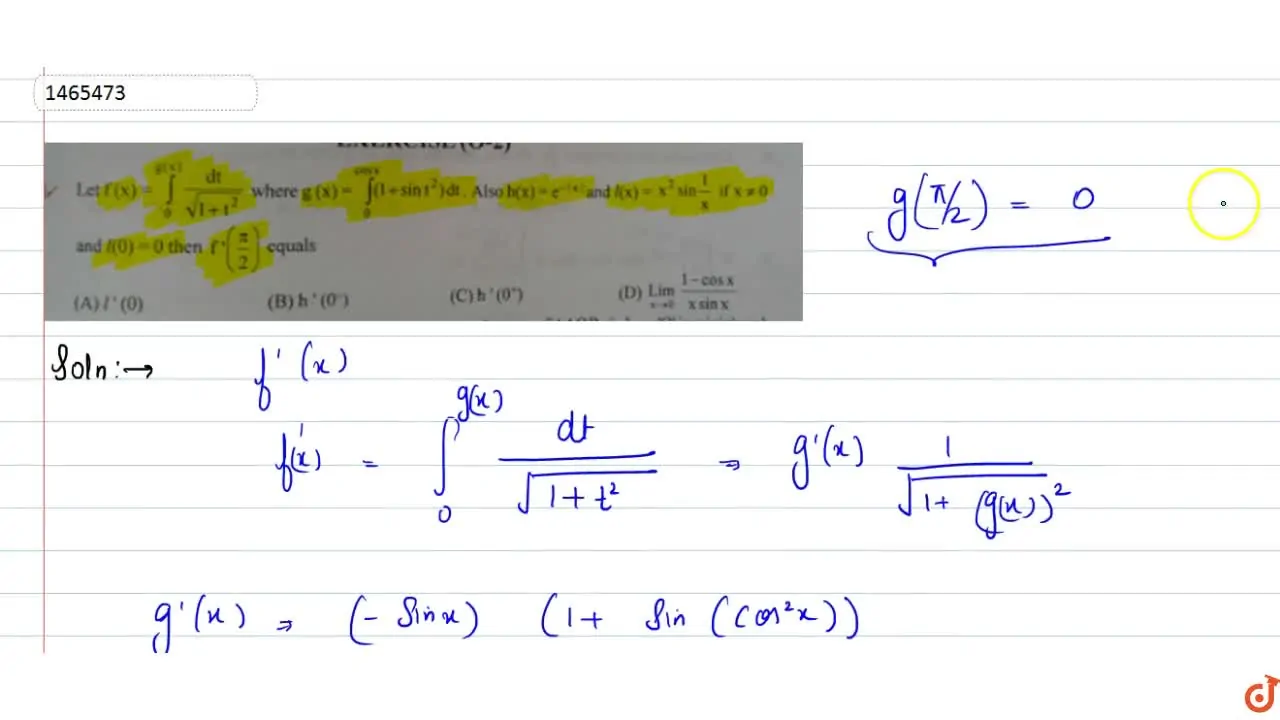 1465473
EXERCISE (O-2)
Let f(x) = ∫₀^g(x) dt/√(1+t²) where g (x) = ∫₀^cosx (1+sin t²)dt. Also h(x) = e^-|x| and l(x) = x² sin 1/x if x ≠ 0
and l(0) = 0 then f '(π/2) equals
(A) l ' (0) (B) h ' (0⁻) (C) h ' (0⁺) (D) Lim x→0 1−cos x / x sin x
g(π/2) = 0
Soln:→ f' (x)
f'(x) = ∫₀^g(x) dt/√(1+t²) ⇒ g'(x) 1/√(1+(g(x))²)
g'(x) ⇒ (- Sinx) (1+ Sin (Cos²x))